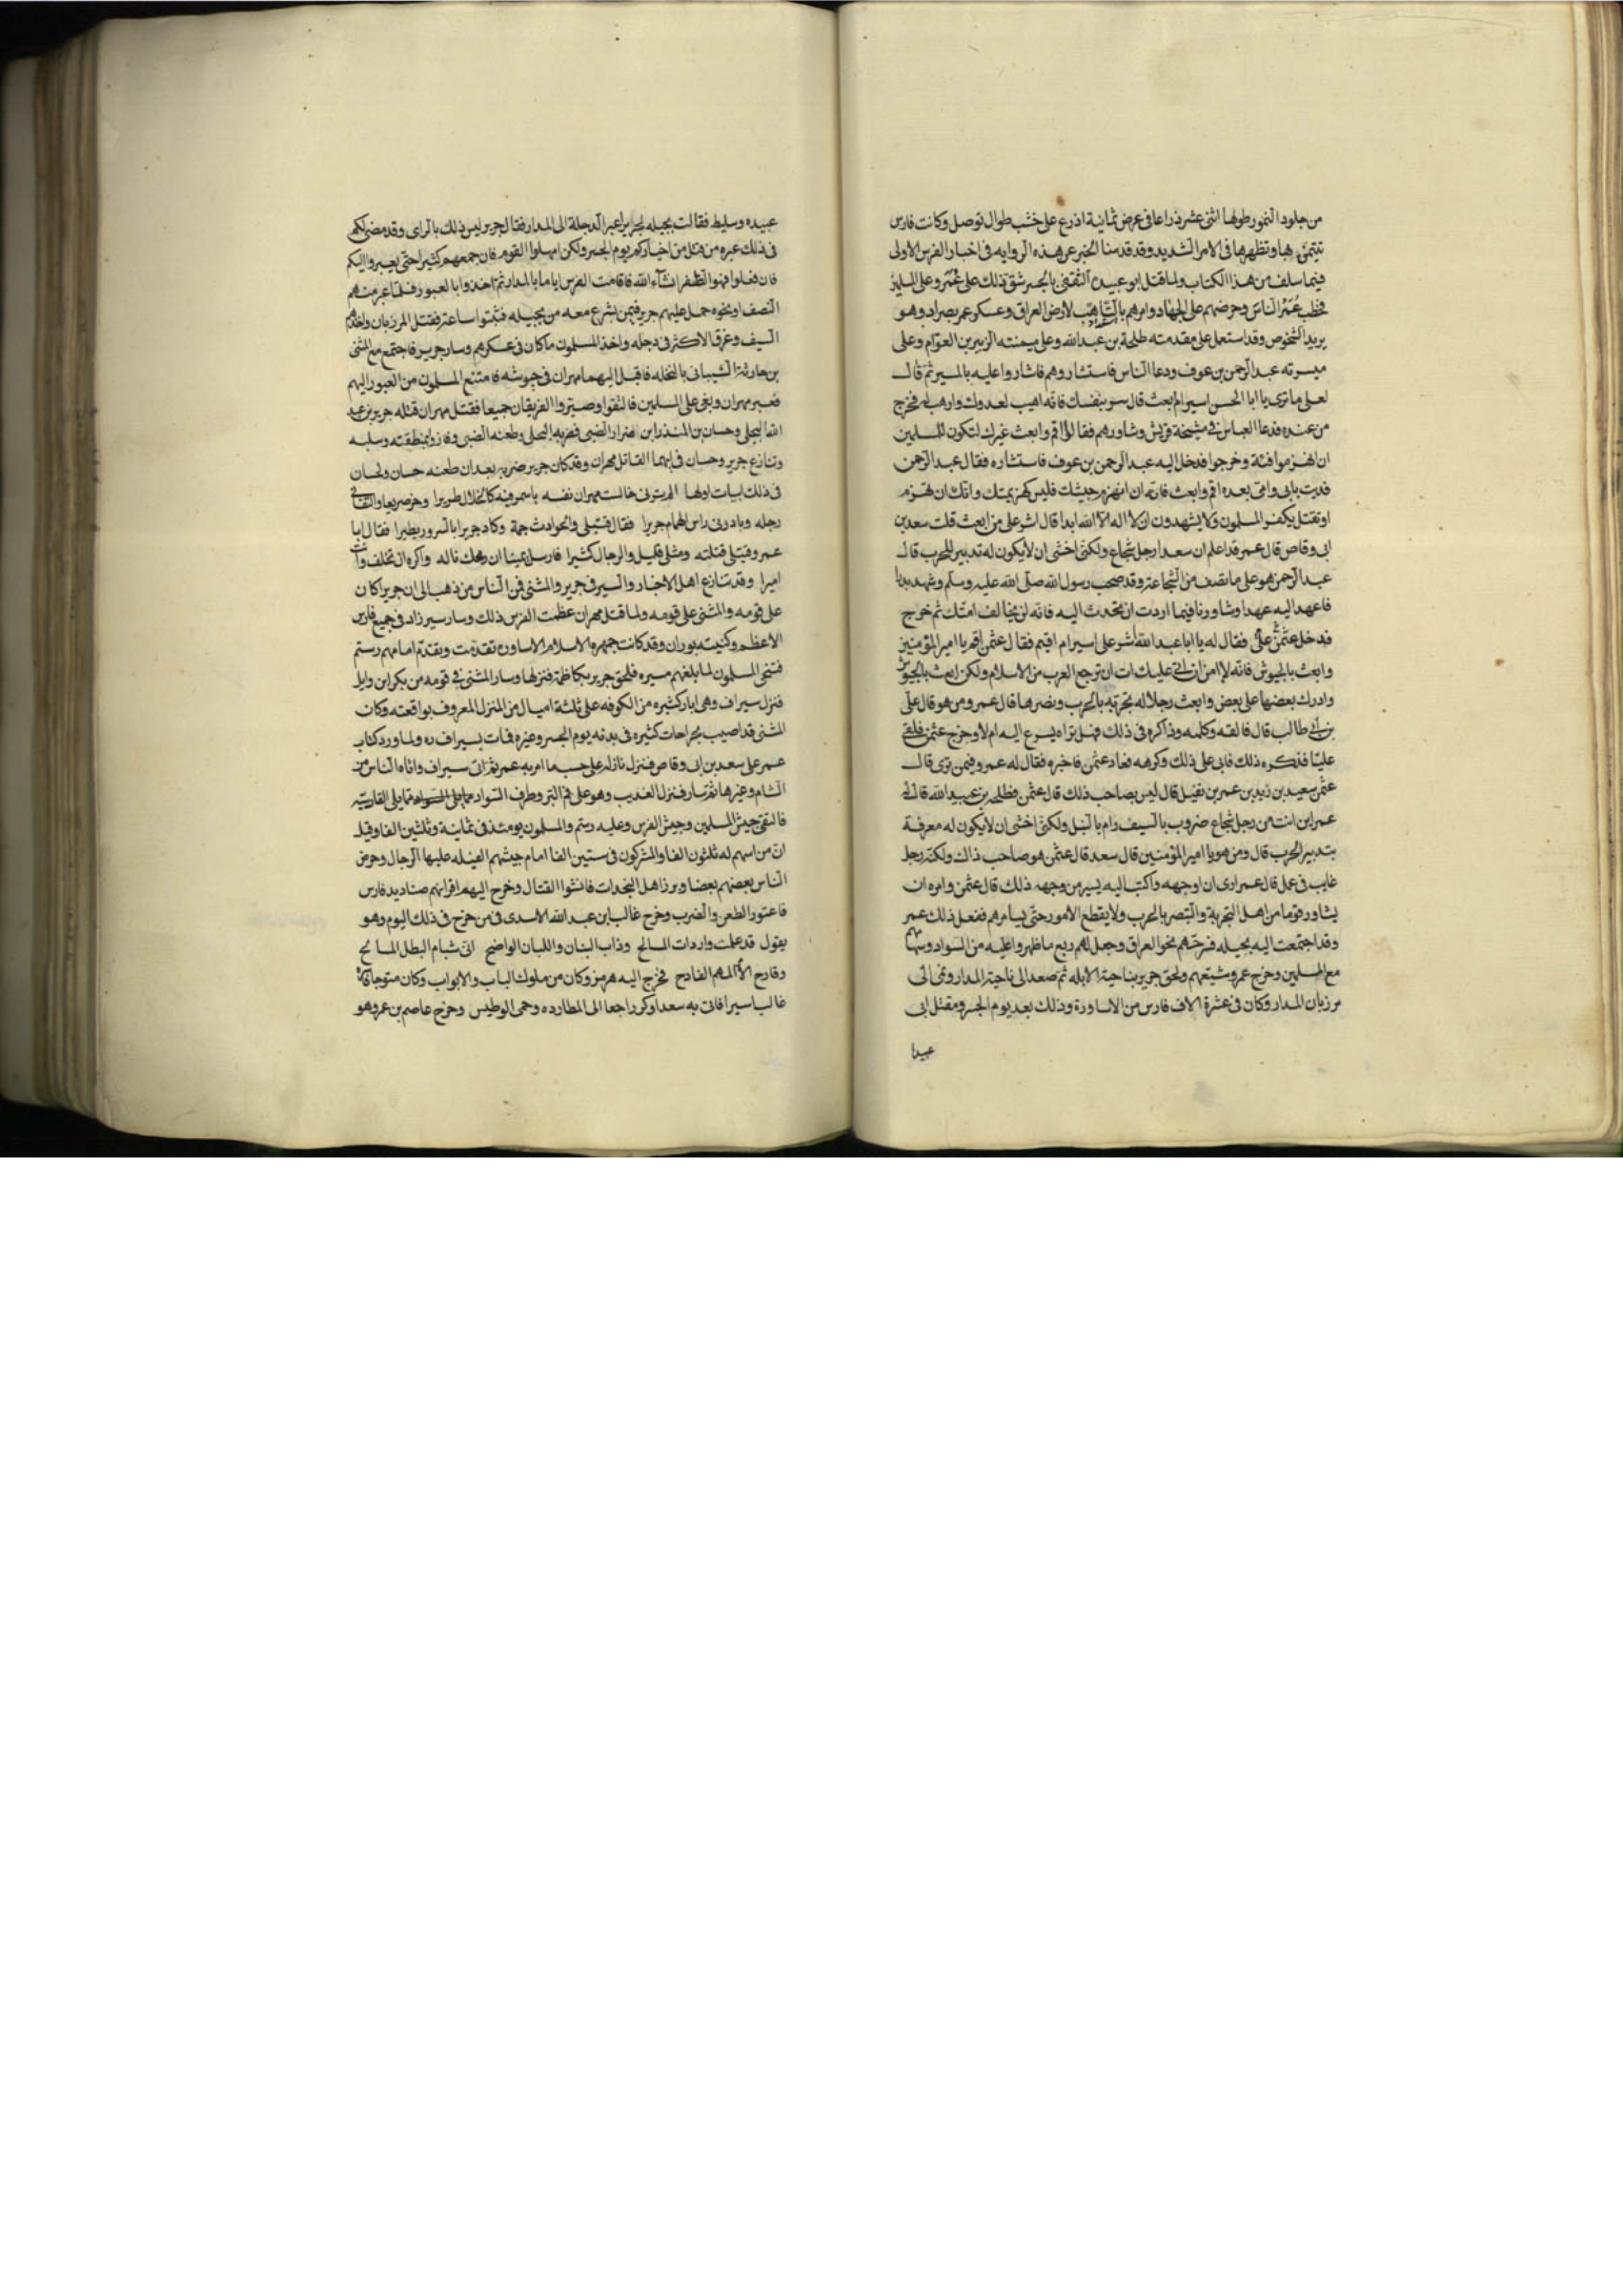 من جلود النمور طولها اثنى عشر ذراعا فى عرض ثمانية اذرع على خشب طوال توصل وكانت فارس
تتيمن بها وتظهرها فى الامر الشديد وقد قدمنا الخبر عن هذه الروايه فى اخبار الفرس الاولى
فيما سلف من هذا الكتاب ولما قتل ابو عبيده الثقفى بالجسر شق ذلك على عمر وعلى المسلمين
فخطب عمر الناس وحرضهم على الجهاد وامرهم بالتاهب لارض العراق وعسكر عمر بصرار وهو
يريد الشخوص وقد استعمل على مقدمته طلحة بن عبد الله وعلى ميمنته الزبير بن العوام وعلى
ميسرته عبد الرحمن بن عوف ودعا الناس فاستشاروهم فاشاروا عليه بالمسير ثم قال
لعلى ما ترى يا ابا الحسن اسير ام ابعث قال سر بنفسك فانه اهيب لعدوك وارهب له فخرج
من عنده فدعا العباس فى مشيخة قريش وشاورهم فقالوا اقم وابعث غيرك لتكون للمسلمين
ان انهزموا فئة وخرجوا فدخل اليه عبد الرحمن بن عوف فاستشاره فقال عبد الرحمن
فديت بابى وامى بعده اقم وابعث فانه ان انهزم جيشك فليس كهزيمتك وانك ان تهزم
او تقتل يكفر المسلمون ولا يشهدون ان لا اله الا الله ابدا قال اشر على من ابعث قلت سعد بن
ابى وقاص قال عمر قد اعلم ان سعدا رجل شجاع ولكنى اخشى ان لا يكون له تدبير للحرب قال
عبد الرحمن هو على ما تصف من الشجاعة وقد صحب رسول الله صلى الله عليه وسلم وشهد بدرا
فاعهد اليه عهدا وشاورنا فيما اردت ان تحدث اليه فانه لن يخالف امتك ثم خرج
فدخل عثمن على فقال له يا ابا عبد الله اشر على اسير ام اقيم فقال عثمن اقم يا امير المؤمنين
وابعث بالجيوش فانه لا امن ان اتى عليك ات ان ترجع العرب من الاسلام ولكن ابعث بالجيوش
وادرك بعضها على بعض وابعث رجلا له تجربة بالحرب وبصر بها قال عمر ومن هو قال على
بن ابى طالب قال فالقه وكلمه وذاكره فى ذلك فهل تراه يسرع اليه ام لا وخرج عثمن فلقى
عليا فذكره ذلك فابى على ذلك وكرهه فعاد عثمن فاخبره فقال له عمر وفيمن ترى قال
عثمن سعيد بن زيد بن عمر بن نفيل قال ليس بصاحب ذلك قال عثمن فطلحة بن عبيد الله قال له
عمر اين انت من رجل شجاع ضروب بالسيف رام بالنبل ولكنى اخشى ان لا يكون له معرفة
بتدبير الحرب قال ومن هو يا امير المؤمنين قال سعد قال عثمن هو صاحب ذاك ولكنه رجل
غايب فى عمل قال عمر ارى ان اوجهه واكتب اليه يسير من وجهه ذلك قال عثمن وامره ان
يشاور قوما من اهل التجربة والتبصر بالحرب ولا يقطع الامور حتى يسامرهم ففعل ذلك عمر
وقد اجتمعت اليه بجيله فسرحهم نحو العراق وجعل لهم ربع ما ظهروا عليه من السواد وسهما
مع المسلمين وخرج عمر ومشيعهم ولحق جرير بناحية الابله ثم صعد الى ناحية المدار ونمى الى
مرزبان المدار وكان فى عشرة الاف فارس من الاساورة وذلك بعد يوم الجسر ومقتل ابى
عبيدا
عبيده وسليط فقالت بجيله لجرير اعبر الدجلة الى المدار فقال جرير ليس ذلك بالراى وقد مضى لكم
فى ذلك عبره من قتل من اخياركم يوم الجسر ولكن امهلوا القوم فان جمعهم كثير احتى يعبروا اليكم
فان فعلوا فهو الظفر ان شاء الله فاقامت الفرس اياما بالمدار ثم اخذوا بالعبور فلما عبر منهم
النصف او نحوه حمل عليهم جرير فيمن اشرع معه من بجيله فثبتوا ساعة فقتل المرزبان واخذهم
السيف وغرق الاكثر فى دجله واخذ المسلمون ما كان فى عسكرهم وسار جرير فاجتمع مع المثنى
بن حارثة الشيبانى بالنخله فاقبل اليهما مهران فى جيوشه فامتنع المسلمون من العبور اليهم
فعبر مهران وبغى على المسلمين فالتقوا وصبروا الفريقان جميعا فقتل مهران قتله جرير بن عبد
الله البجلى وحسان بن المنذر ابن ضرار الضبى فضربه البجلى وطعنه الضبى وفاز وبمنطقته وسلبه
وتنازع جرير وحسان فى ايهما القاتل لمهران وقد كان جرير ضربه بعد ان طعنه حسان ولحسان
فى ذلك ابيات اولها الم ترنى خالست مهران نفسه باسمر فيه كالخلال طريرا وخر صريعا والتقانى
رجله وبادر فى راس الهمام جريرا فقال قتيلى والحوادث جمة وكاد جرير ابالسرور يطيرا فقال ابا
عمر وقتيلى قتلته ومثلى قليل والرجال كثيرا فارسل يمينا ان رمحك ناله واكره ان تحلف وانت
اميرا وقد تنازع اهل الاخبار والسير فى جرير والمثنى فمن الناس من ذهب الى ان جريرا كان
على قومه والمثنى على قومه ولما قتل مهران عظمت الفرس ذلك وسار سيرزاد فى جميع فارس
الاعظم وكنيته بوران وقد كانت جمهره الاسلام الاساوره تقدمت وتقدم امامهم رستم
فتنحى المسلمون لما بلغهم مسيره فلحق جرير بكاظمة فنزلها وسار المثنى فى قومه من بكر ابن وايل
فنزل سيراف وهى ابار كثيره من الكوفه على ثلثة اميال من المنزل المعروف بواقعته وكان
المثنى قد اصيب بجراحات كثيره فى بدنه يوم الجسر وغيره فمات بسيراف ره ولما ورد كتاب
عمر على سعد بن ابى وقاص فنزل نازله على حسب ما امر به عمر ثم اتى سيراف واتاه الناس من
الشام وغيرها ثم سار فنزل العذيب وهو على فم البر وطرف السواد مما يلى السواد مما يلى القادسيه
فالتقى جيش المسلمين وجيش الفرس وعليه رستم والمسلمون يومئذ فى ثمانية وثلثين الفا وقيل
ان من اسهم له ثلثون الفا والمشركون فى ستين الفا امام جيشهم الفيله عليها الرجال وحرض
الناس بعضهم بعضا وبرز اهل النجدات فانشوا القتال وخرج اليهم اقرانهم صناديد فارس
فاعتور الطعن والضرب وخرج غالب ابن عبد الله الاسدى فى من خرج فى ذلك اليوم وهو
يقول قد علمت واردات المسالح وذاب البنان واللبان الواضح انى شبام البطل المسالح
وفارج الامر المهم الفادح فخرج اليه هرمز وكان من ملوك الباب والابواب وكان متوجا فاسره
غالب اسيرا فاتى به سعدا وكر راجعا الى المطارده وحمى الوطيس وخرج عاصم بن عمر وهو